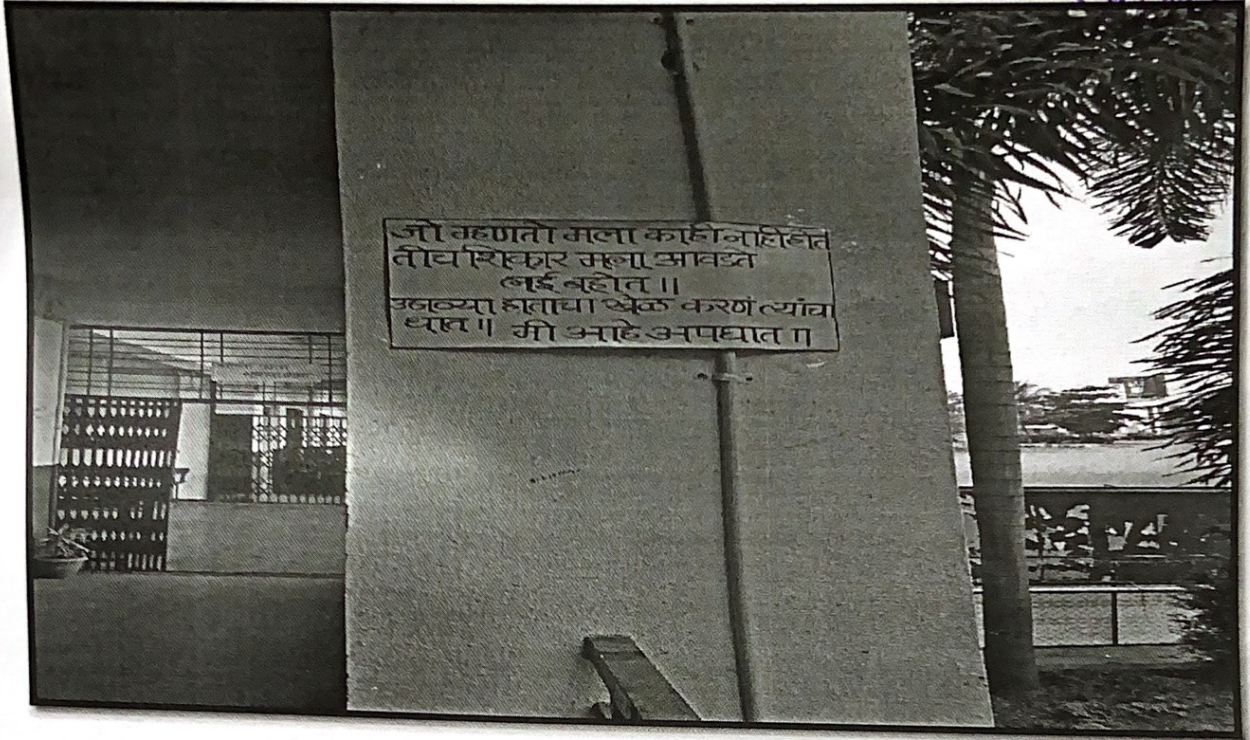 जो म्हणतो मला काही नाही होत
तीच शिकार मना आवडते
लई बहोत ॥
डाव्या हाताचा खेळ करणं त्यांचा
घात ॥ मी आहे अपघात ॥